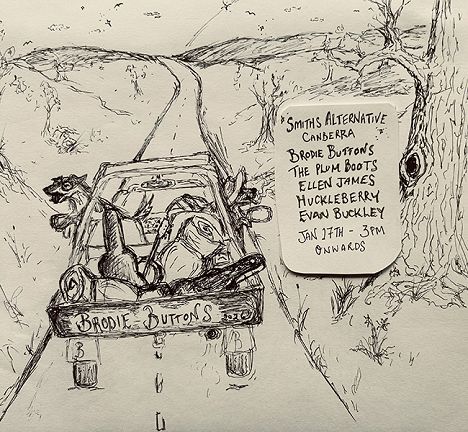 SMITHS ALTERNATIVE
CANBERRA
BRODIE BUTTONS
THE PLUM BOOTS
ELLEN JAMES
HUCKLEBERRY
EVAN BUCKLEY
JAN 17TH - 3PM
ONWARDS
BRODIE - BUTTONS
B
B